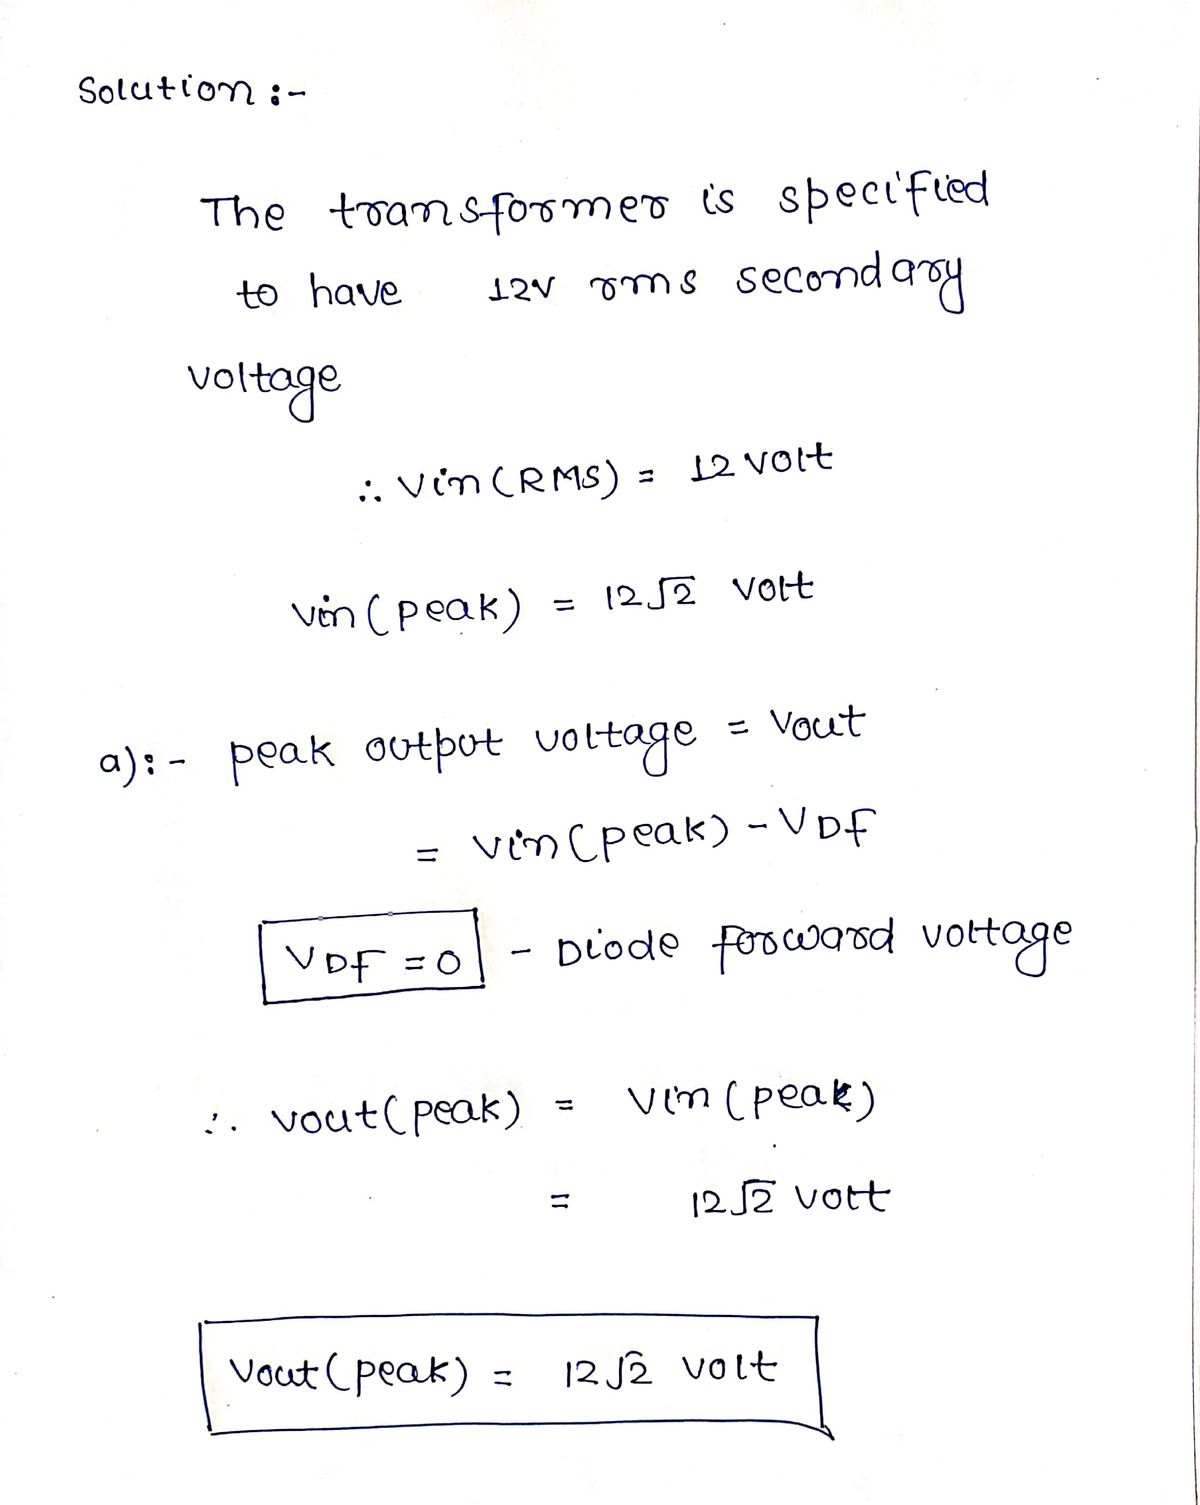 Solution :-
The transformer is specified
to have 12V rms secondary
voltage
∴ Vin (RMS) = 12 volt
Vin (peak) = 12√2 volt
a):- peak output voltage = Vout
= Vin (peak) - VDF
VDF = 0 - Diode forward voltage
∴ Vout (peak) = Vin (peak)
= 12√2 volt
Vout (peak) = 12√2 volt